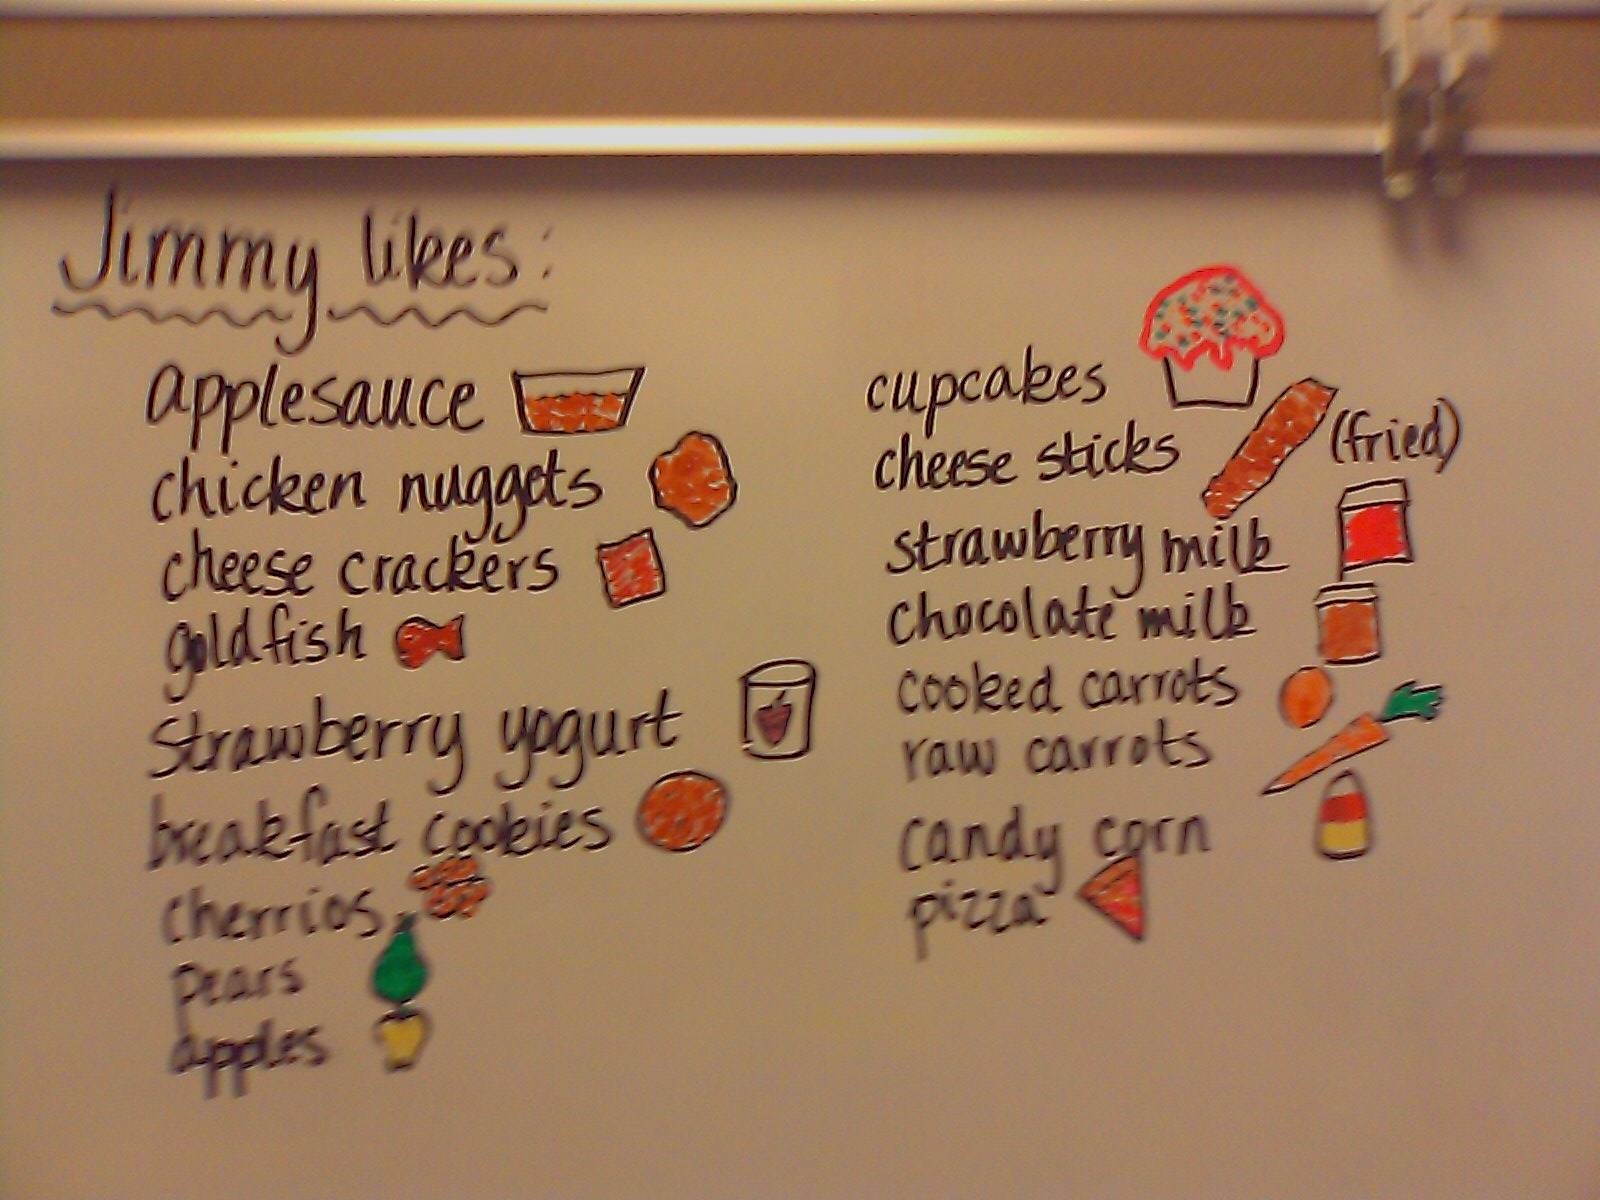 Jimmy likes:
applesauce
chicken nuggets
cheese crackers
goldfish
strawberry yogurt
breakfast cookies
cherrios
pears
apples
cupcakes
cheese sticks (fried)
strawberry milk
chocolate milk
cooked carrots
raw carrots
candy corn
pizza